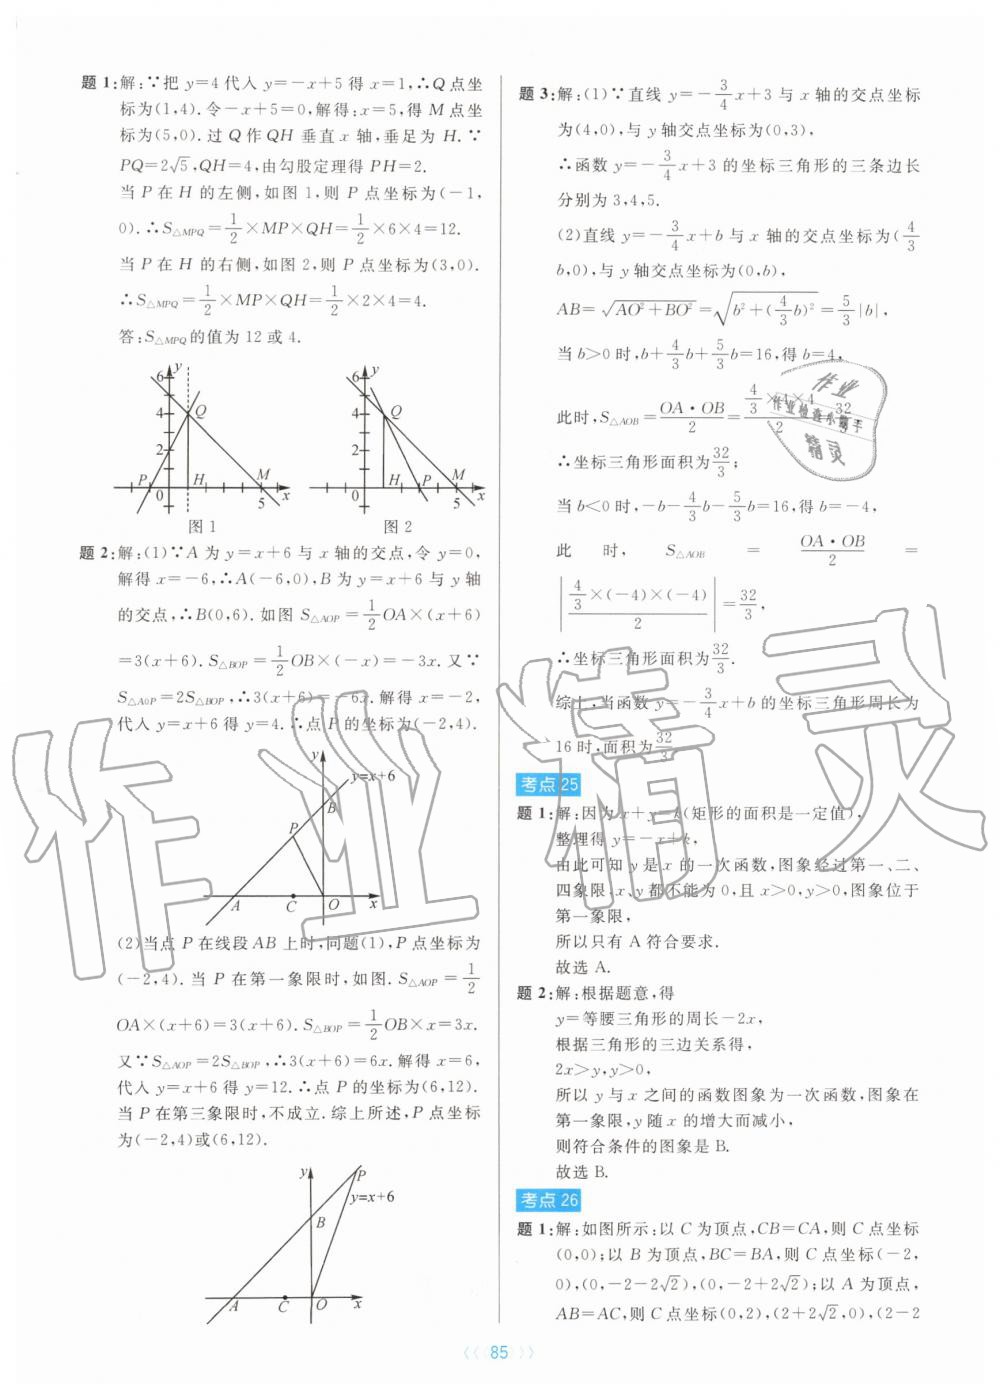 题 1:解:∵把 y=4 代入 y=-x+5 得 x=1,∴Q 点坐
标为(1,4).令-x+5=0,解得:x=5,得 M 点坐
标为(5,0).过 Q 作 QH 垂直 x 轴,垂足为 H.∵
PQ=2√5,QH=4,由勾股定理得 PH=2.
当 P 在 H 的左侧,如图 1,则 P 点坐标为(-1,
0).∴S△MPQ=1/2×MP×QH=1/2×6×4=12.
当 P 在 H 的右侧,如图 2,则 P 点坐标为(3,0).
∴S△MPQ=1/2×MP×QH=1/2×2×4=4.
答:S△MPQ的值为 12 或 4.
6 y 4 Q 2 P 0 H M 5 x
图 1
6 y 4 Q 2 0 H P M 5 x
图 2
题 2:解:(1)∵A 为 y=x+6 与 x 轴的交点,令 y=0,
解得 x=-6,∴A(-6,0),B 为 y=x+6 与 y 轴
的交点,∴B(0,6).如图 S△AOP=1/2OA×(x+6)
=3(x+6).S△BOP=1/2OB×(-x)=-3x.又∵
S△AOP=2S△BOP,∴3(x+6)=-6x.解得 x=-2,
代入 y=x+6 得 y=4.∴点 P 的坐标为(-2,4).
y y=x+6 B P A C O x
(2)当点 P 在线段 AB 上时,同题(1),P 点坐标为
(-2,4).当 P 在第一象限时,如图.S△AOP=1/2
OA×(x+6)=3(x+6).S△BOP=1/2OB×x=3x.
又∵S△AOP=2S△BOP,∴3(x+6)=6x.解得 x=6,
代入 y=x+6 得 y=12.∴点 P 的坐标为(6,12).
当 P 在第三象限时,不成立.综上所述,P 点坐标
为(-2,4)或(6,12).
y P y=x+6 B A C O x
题 3:解:(1)∵直线 y=-3/4x+3 与 x 轴的交点坐标
为(4,0),与 y 轴交点坐标为(0,3),
∴函数 y=-3/4x+3 的坐标三角形的三条边长
分别为 3,4,5.
(2)直线 y=-3/4x+b 与 x 轴的交点坐标为(4/3
b,0),与 y 轴交点坐标为(0,b),
AB=√(AO²+BO²)=√(b²+(4/3b)²)=5/3|b|,
当 b>0 时,b+4/3b+5/3b=16,得 b=4,
此时,S△AOB=OA·OB/2=4/3×4×4/2=32/3,
∴坐标三角形面积为32/3;
当 b<0 时,-b-4/3b-5/3b=16,得 b=-4,
此 时, S△AOB = OA·OB/2 =
|4/3×(-4)×(-4)/2|=32/3,
∴坐标三角形面积为32/3.
综上,当函数 y=-3/4x+b 的坐标三角形周长为
16 时,面积为32/3.
考点 25
题 1:解:因为 x+y=k(矩形的面积是一定值),
整理得 y=-x+k,
由此可知 y 是 x 的一次函数,图象经过第一、二、
四象限,x、y 都不能为 0,且 x>0,y>0,图象位于
第一象限,
所以只有 A 符合要求.
故选 A.
题 2:解:根据题意,得
y=等腰三角形的周长-2x,
根据三角形的三边关系得,
2x>y,y>0,
所以 y 与 x 之间的函数图象为一次函数,图象在
第一象限,y 随 x 的增大而减小,
则符合条件的图象是 B.
故选 B.
考点 26
题 1:解:如图所示:以 C 为顶点,CB=CA,则 C 点坐标
(0,0);以 B 为顶点,BC=BA,则 C 点坐标(-2,
0),(0,-2-2√2),(0,-2+2√2);以 A 为顶点,
AB=AC,则 C 点坐标(0,2),(2+2√2,0),(2-2
85
作业精灵
作业
作业检查小助手
精灵